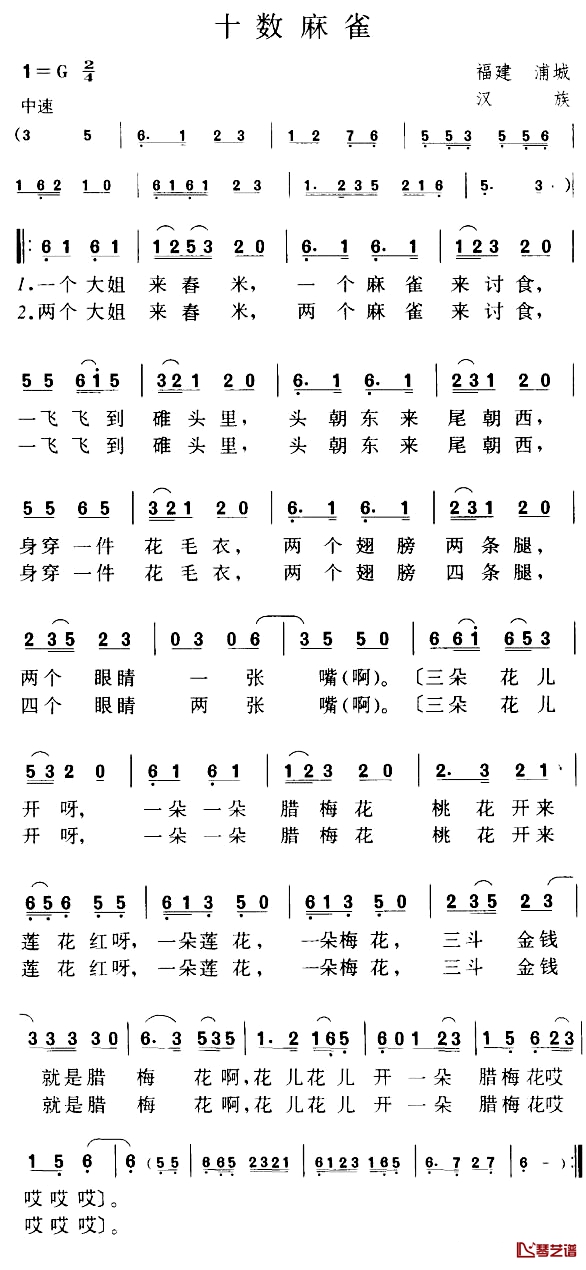 十数麻雀
1=G 2/4
福建 浦城
中速
汉 族
(3 5 | 6. 1 2 3 | 1 2 7 6 | 5 5 3 5 5 6 |
1 6 2 1 0 | 6 1 6 1 2 3 | 1. 2 3 5 2 1 6 | 5. 3 · )|
‖: 6 1 6 1 | 1 2 5 3 2 0 | 6. 1 6. 1 | 1 2 3 2 0 |
1.一个大姐来舂米，一个麻雀来讨食，
2.两个大姐来舂米，两个麻雀来讨食，
5 5 6 i 5 | 3 2 1 2 0 | 6. 1 6. 1 | 2 3 1 2 0 |
一飞飞到碓头里，头朝东来尾朝西，
一飞飞到碓头里，头朝东来尾朝西，
5 5 6 5 | 3 2 1 2 0 | 6. 1 6. 1 | 2 3 1 2 0 |
身穿一件花毛衣，两个翅膀两条腿，
身穿一件花毛衣，两个翅膀四条腿，
2 3 5 2 3 | 0 3 0 6 | 3 5 5 0 | 6 6 i 6 5 3 |
两个眼睛一张嘴(啊)。〔三朵花儿
四个眼睛两张嘴(啊)。〔三朵花儿
5 3 2 0 | 6 1 6 1 | 1 2 3 2 0 | 2. 3 2 1 |
开呀，一朵一朵腊梅花 桃花开来
开呀，一朵一朵腊梅花 桃花开来
6 5 6 5 5 | 6 1 3 5 0 | 6 1 3 5 0 | 2 3 5 2 3 |
莲花红呀，一朵莲花，一朵梅花，三斗金钱
莲花红呀，一朵莲花，一朵梅花，三斗金钱
3 3 3 3 0 | 6. 3 5 3 5 | 1. 2 1 6 5 | 6 0 1 2 3 | 1 5 6 2 3 |
就是腊梅花啊，花儿花儿开一朵腊梅花哎
就是腊梅花啊，花儿花儿开一朵腊梅花哎
1 5 6 | 6 (5 5 | 6 6 5 2 3 2 1 | 6 1 2 3 1 6 5 | 6. 7 2 7 | 6 -) :‖
哎哎哎〕。
哎哎哎〕。
琴艺谱